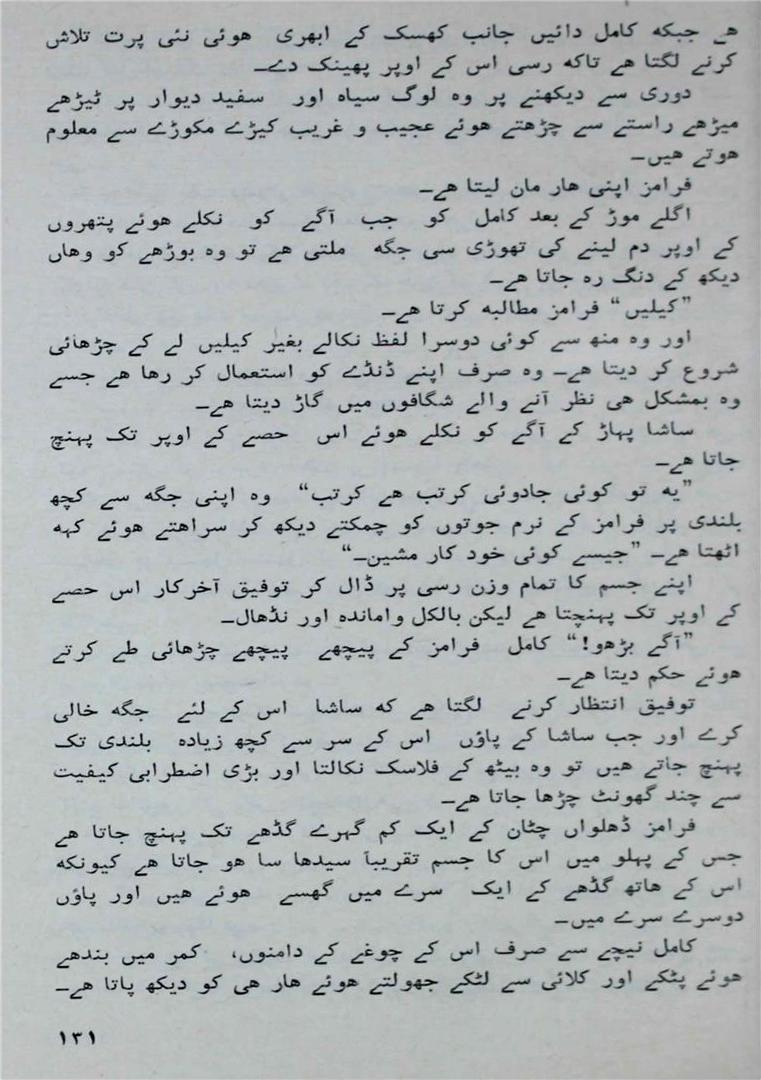 هے جبکه کامل دائیں جانب کھسک کے ابھری هوئی نئی پرت تلاش
کرنے لگتا هے تاکه رسی اس کے اوپر پھینک دے۔
دوری سے دیکھنے پر وه لوگ سیاه اور سفید دیوار پر ٹیڑھے
میڑھے راستے سے چڑھتے هوئے عجیب و غریب کیڑے مکوڑے سے معلوم
هوتے هیں۔
فرامز اپنی هار مان لیتا هے۔
اگلے موڑ کے بعد کامل کو جب آگے کو نکلے هوئے پتھروں
کے اوپر دم لینے کی تھوڑی سی جگه ملتی هے تو وه بوڑھے کو وهاں
دیکھ کے دنگ ره جاتا هے۔
”کیلیں“ فرامز مطالبه کرتا هے۔
اور وه منھ سے کوئی دوسرا لفظ نکالے بغیر کیلیں لے کے چڑھائی
شروع کر دیتا هے۔ وه صرف اپنے ڈنڈے کو استعمال کر رها هے جسے
وه بمشکل هی نظر آنے والے شگافوں میں گاڑ دیتا هے۔
ساشا پهاڑ کے آگے کو نکلے هوئے اس حصے کے اوپر تک پهنچ
جاتا هے۔
”یه تو کوئی جادوئی کرتب هے کرتب“ وه اپنی جگه سے کچھ
بلندی پر فرامز کے نرم جوتوں کو چمکتے دیکھ کر سراهتے هوئے کهه
اٹھتا هے۔ ”جیسے کوئی خود کار مشین۔“
اپنے جسم کا تمام وزن رسی پر ڈال کر توفیق آخرکار اس حصے
کے اوپر تک پهنچتا هے لیکن بالکل وامانده اور نڈھال۔
”آگے بڑھو!“ کامل فرامز کے پیچھے پیچھے چڑھائی طے کرتے
هوئے حکم دیتا هے۔
توفیق انتظار کرنے لگتا هے که ساشا اس کے لئے جگه خالی
کرے اور جب ساشا کے پاؤں اس کے سر سے کچھ زیاده بلندی تک
پهنچ جاتے هیں تو وه بیٹھ کے فلاسک نکالتا اور بڑی اضطرابی کیفیت
سے چند گھونٹ چڑھا جاتا هے۔
فرامز ڈھلواں چٹان کے ایک کم گهرے گڈھے تک پهنچ جاتا هے
جس کے پهلو میں اس کا جسم تقریباً سیدھا سا هو جاتا هے کیونکه
اس کے هاتھ گڈھے کے ایک سرے میں گھسے هوئے هیں اور پاؤں
دوسرے سرے میں۔
کامل نیچے سے صرف اس کے چوغے کے دامنوں، کمر میں بندھے
هوئے پٹکے اور کلائی سے لٹکے جھولتے هوئے هار هی کو دیکھ پاتا هے۔
۱۳۱